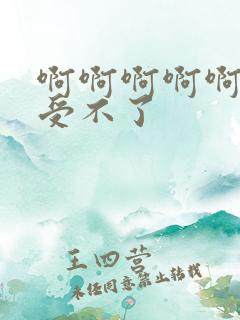 啊啊啊啊啊
受不了
王四营
未经同意禁止转载